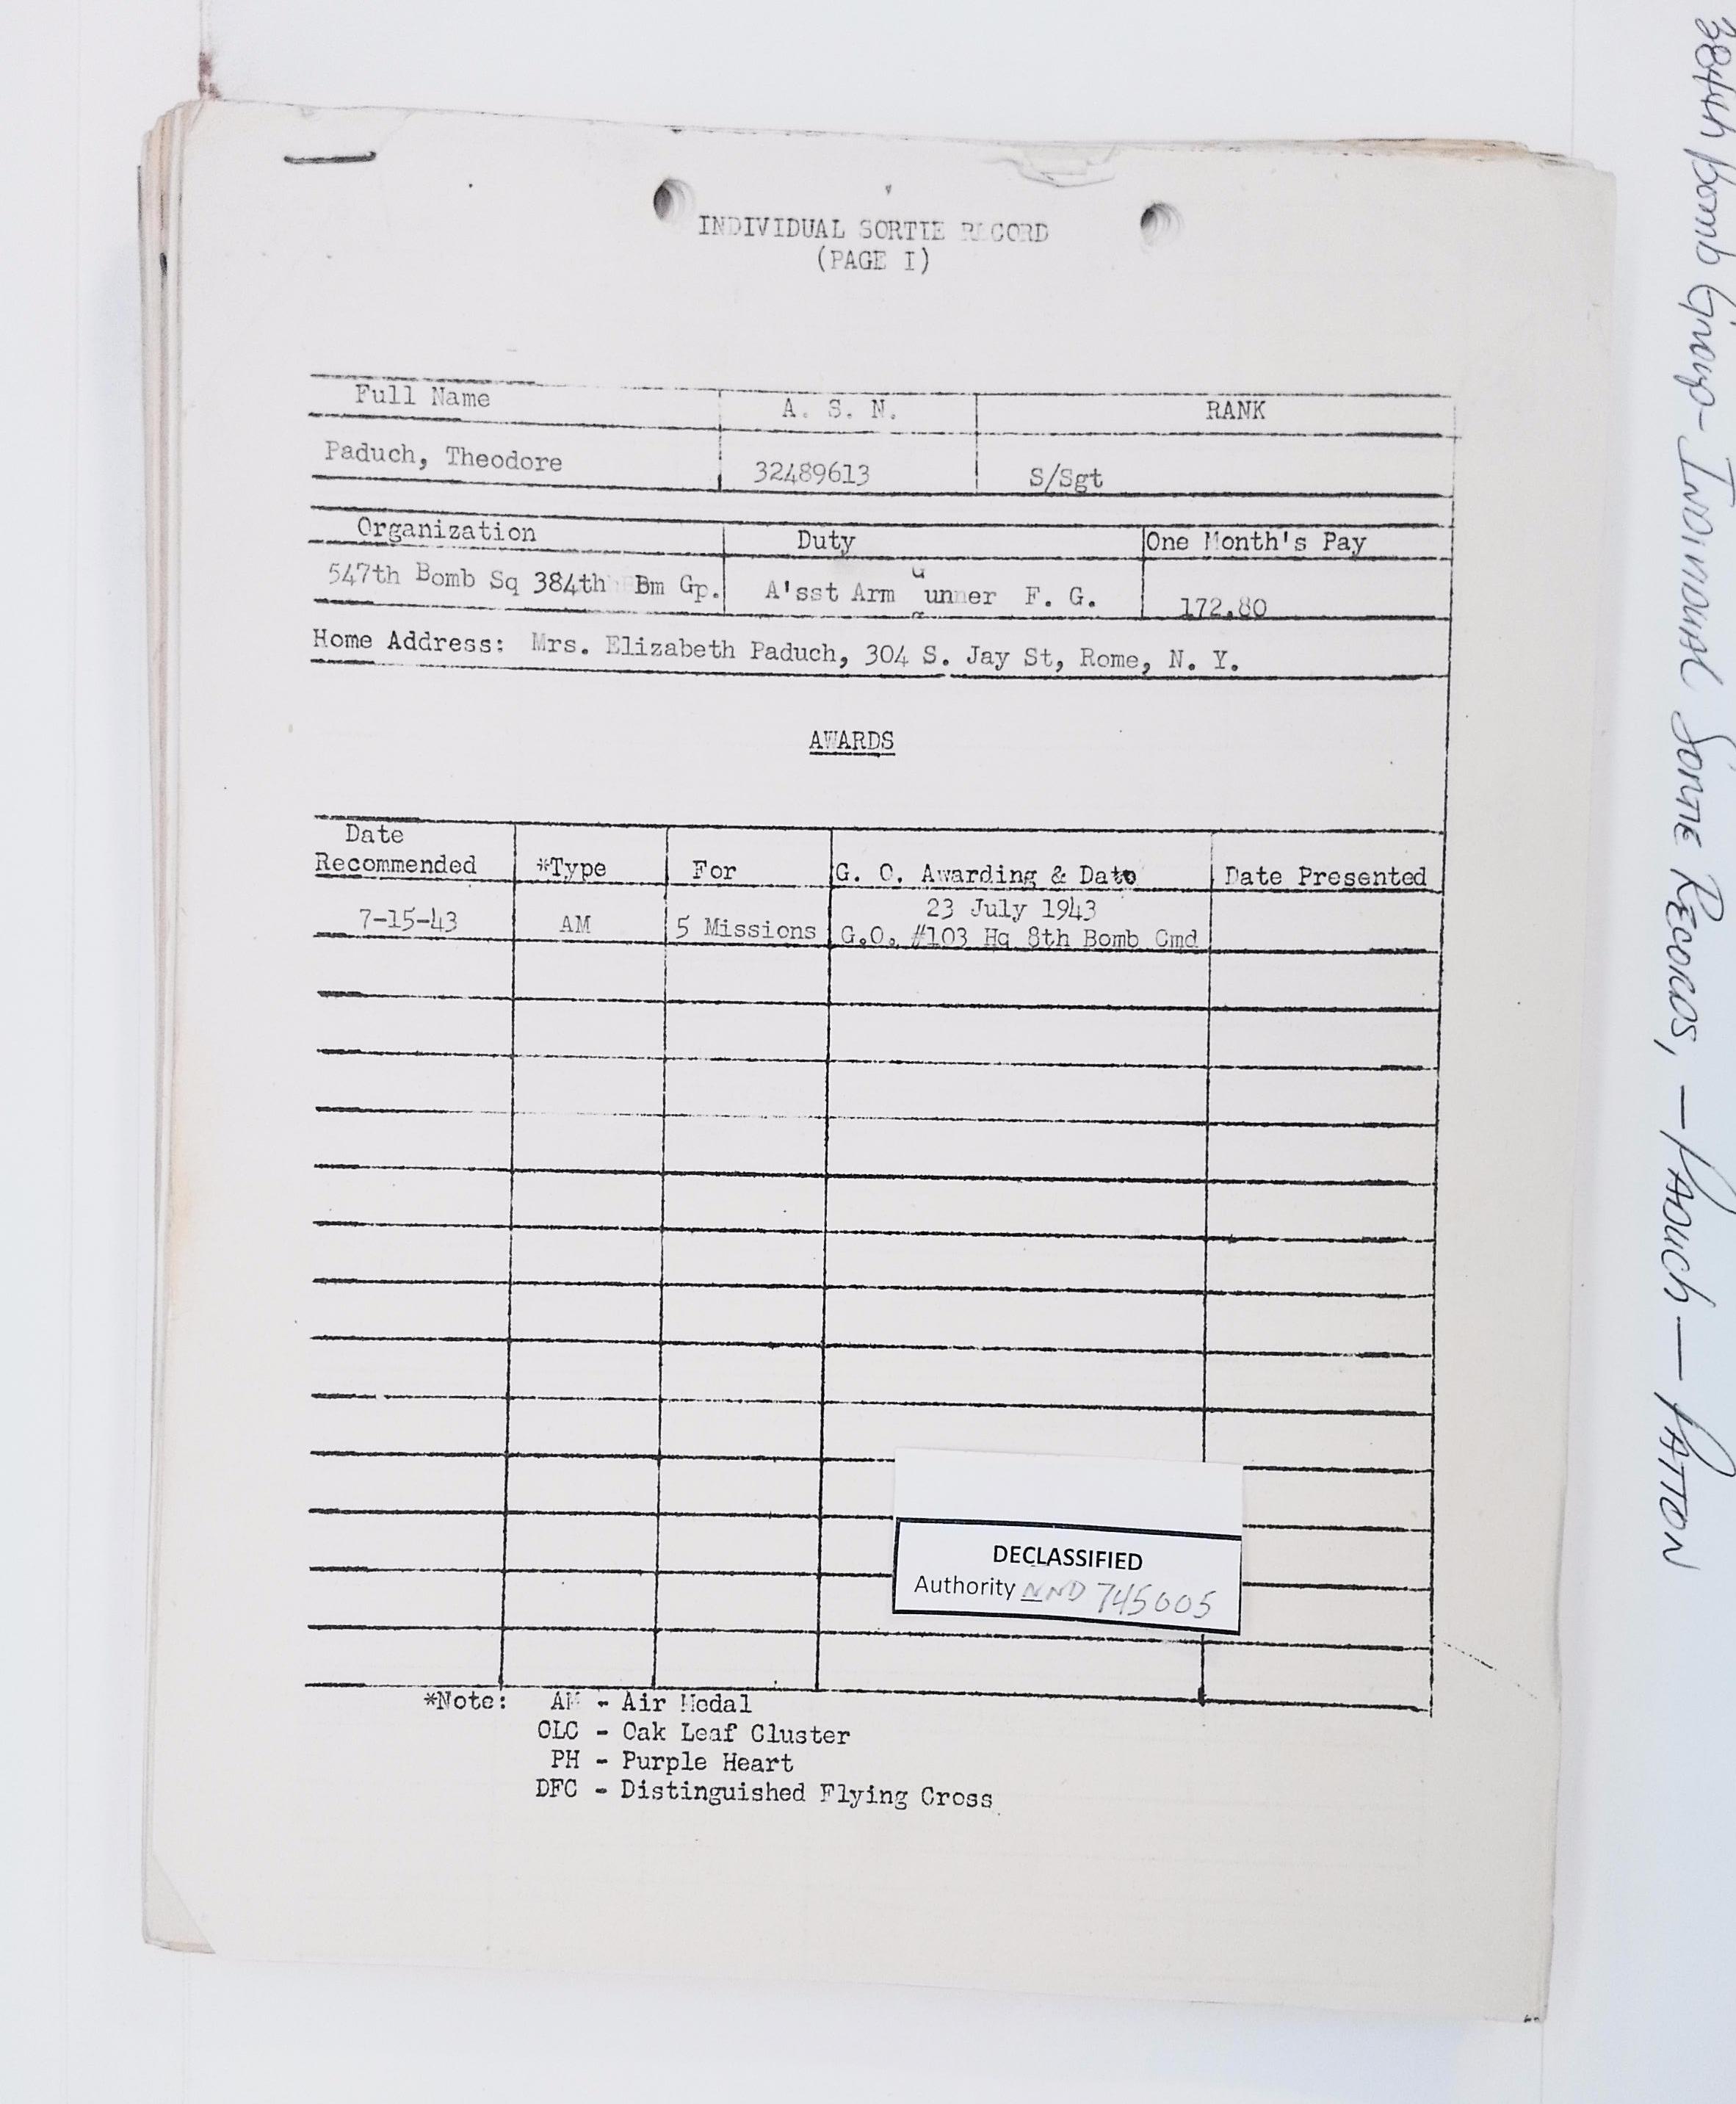 INDIVIDUAL SORTIE RECORD
(PAGE I)
Full Name A. S. N. RANK
Paduch, Theodore 32489613 S/Sgt
Organization Duty One Month's Pay
547th Bomb Sq 384th Bm Gp. A'sst Arm unner F. G. 172.80
Home Address: Mrs. Elizabeth Paduch, 304 S. Jay St, Rome, N. Y.
AWARDS
Date
Recommended *Type For G. O. Awarding & Date Date Presented
7-15-43 AM 5 Missions 23 July 1943
G.O. #103 Hq 8th Bomb Cmd
DECLASSIFIED
Authority NND 745005
*Note: AM - Air Medal
OLC - Oak Leaf Cluster
PH - Purple Heart
DFC - Distinguished Flying Cross
384th Bomb Group - Individual Sortie Records, - Paduch - Patton